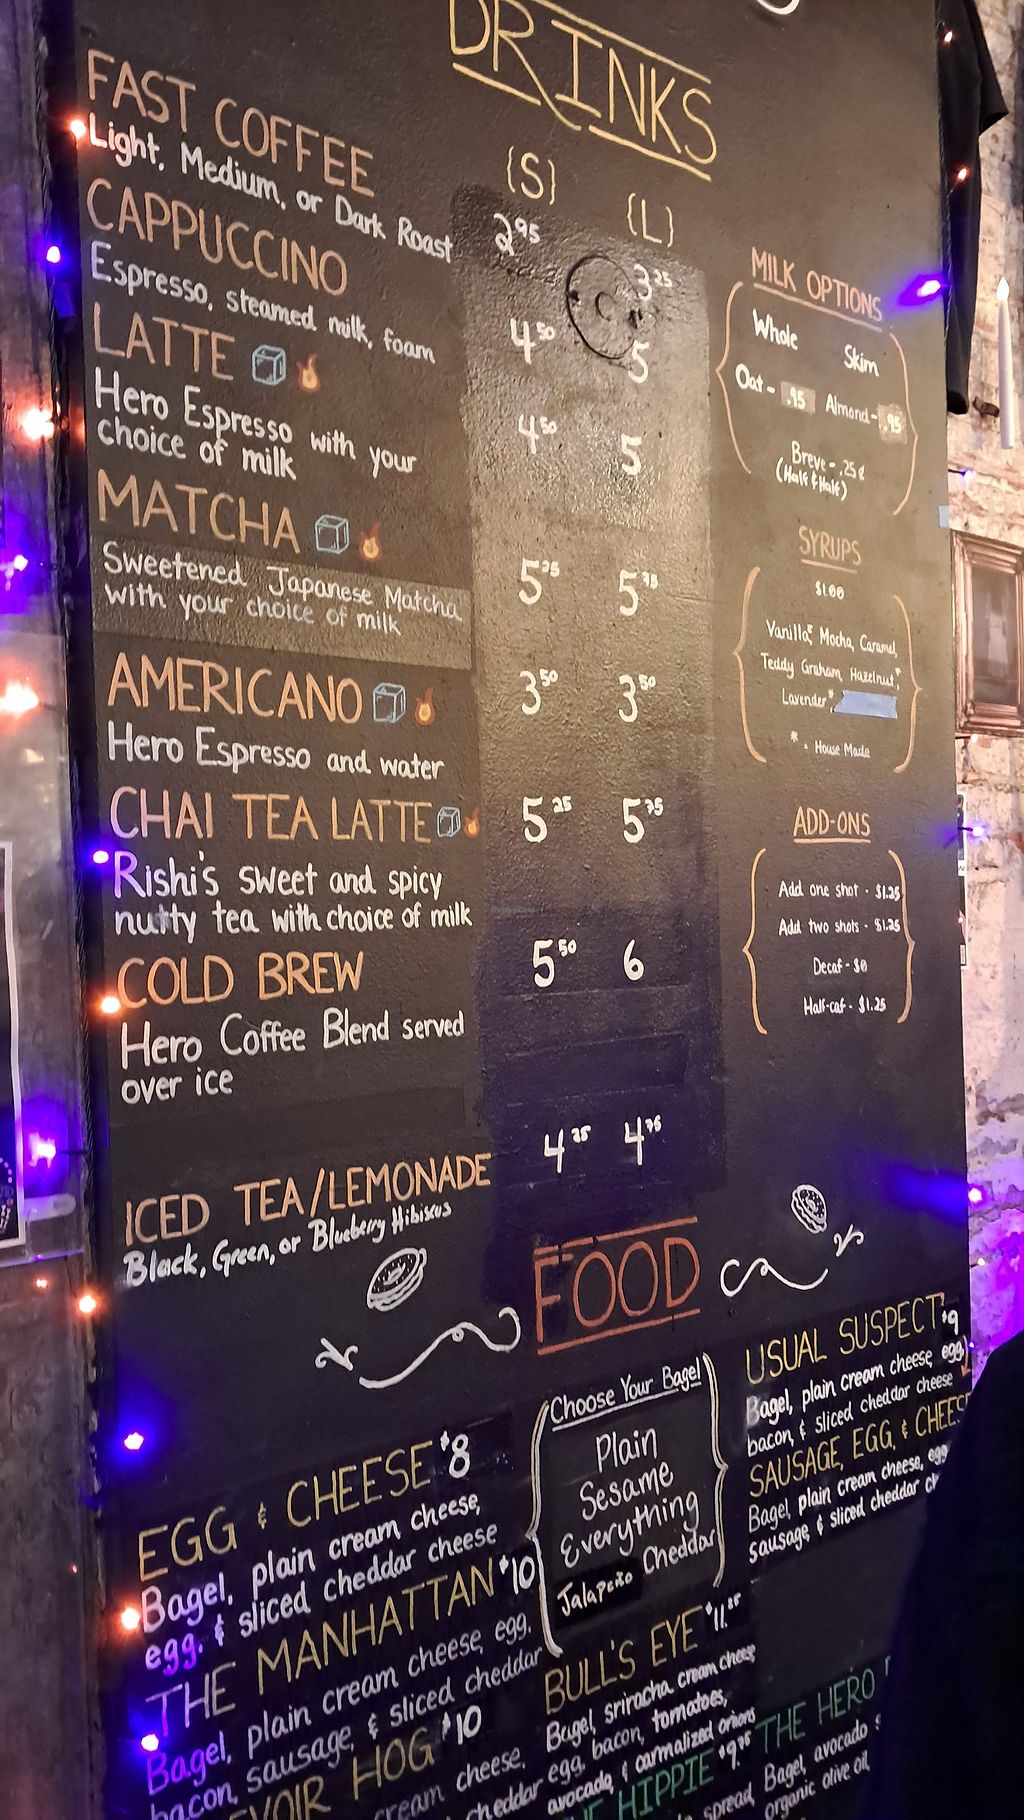 DRINKS
{S}
{L}
FAST COFFEE
Light, Medium, or Dark Roast
2.95
3.25
CAPPUCCINO
Espresso, steamed milk, foam
4.50
5
LATTE
Hero Espresso with your
choice of milk
4.50
5
MATCHA
Sweetened Japanese Matcha
with your choice of milk
5.75
AMERICANO
Hero Espresso and water
3.50
3.50
CHAI TEA LATTE
Rishi's sweet and spicy
nutty tea with choice of milk
5.25
5.75
COLD BREW
Hero Coffee Blend served
over ice
5.50
6
ICED TEA/LEMONADE
Black, Green, or Blueberry Hibiscus
4.25
4.75
MILK OPTIONS
Whole
Skim
Oat - .95
Almond - .95
Breve - .25¢
(Half & Half)
SYRUPS
$1.00
Vanilla*, Mocha, Caramel,
Teddy Graham, Hazelnut*,
Lavender*
* = House Made
ADD-ONS
Add one shot - $1.25
Add two shots - $1.25
Decaf - $0
Half-caf - $1.25
FOOD
Choose Your Bagel
Plain
Sesame
Everything
Cheddar
Jalapeño
EGG & CHEESE $8
Bagel, plain cream cheese,
egg, & sliced cheddar cheese
THE MANHATTAN $10
Bagel, plain cream cheese, egg,
bacon, sausage, & sliced cheddar
HOG $10
cream cheese,
cheddar
USUAL SUSPECT $9
Bagel, plain cream cheese, egg,
bacon, & sliced cheddar cheese
SAUSAGE, EGG, & CHEESE
Bagel, plain cream cheese, egg,
sausage, & sliced cheddar
BULL'S EYE $11.25
Bagel, sriracha cream cheese
egg, bacon, tomatoes,
avocado, & carmalized onions
HIPPIE $9.75
spread
THE HERO
Bagel, avocado
organic olive oil,